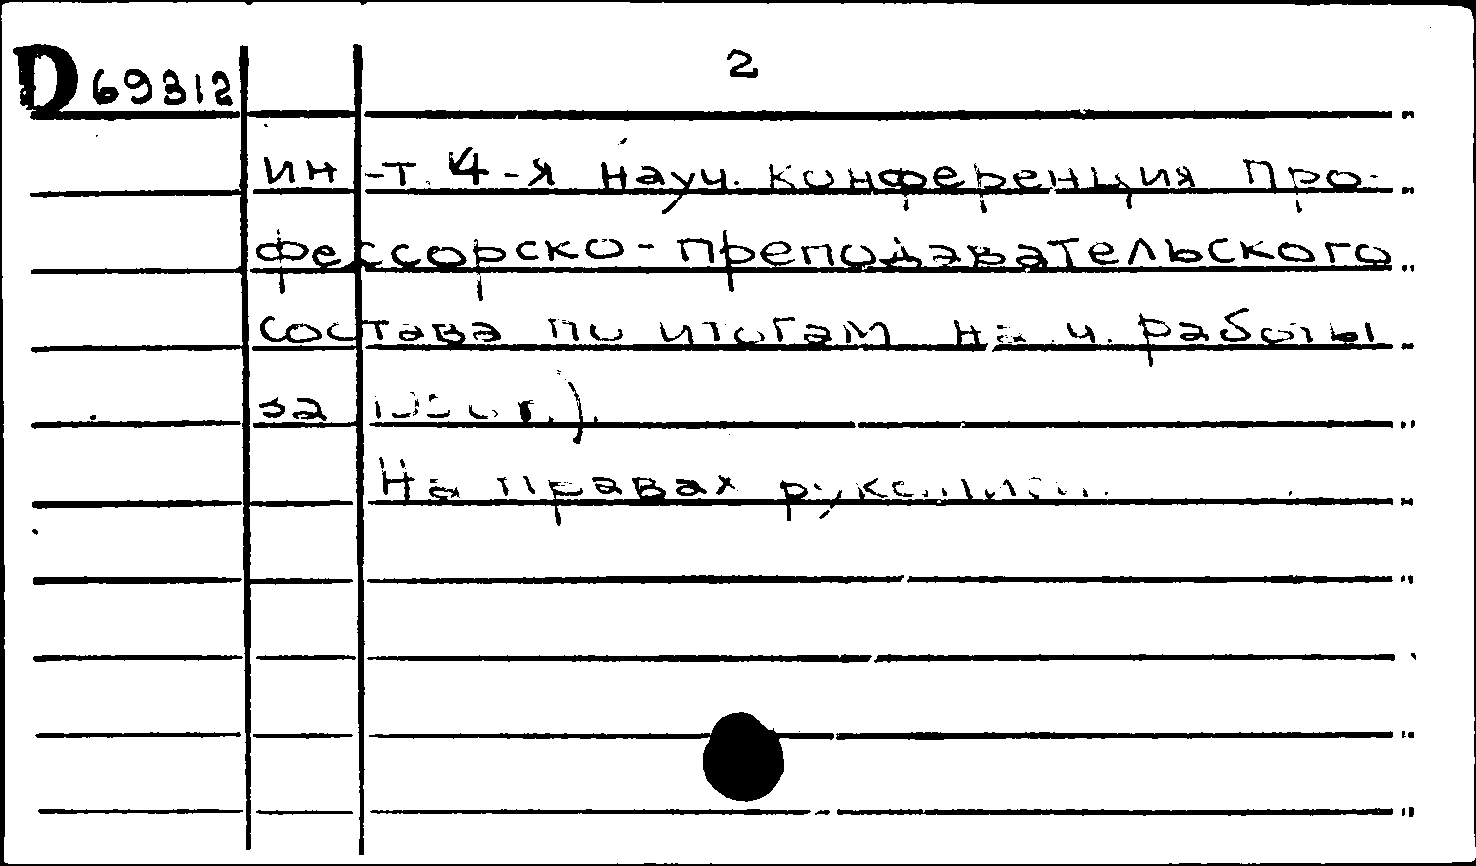 2
D 69312
ин-т. 4-я науч. конференция про-
фессорско-преподавательского
состава по итогам нач. работы
за г.).
На правах рукописи.